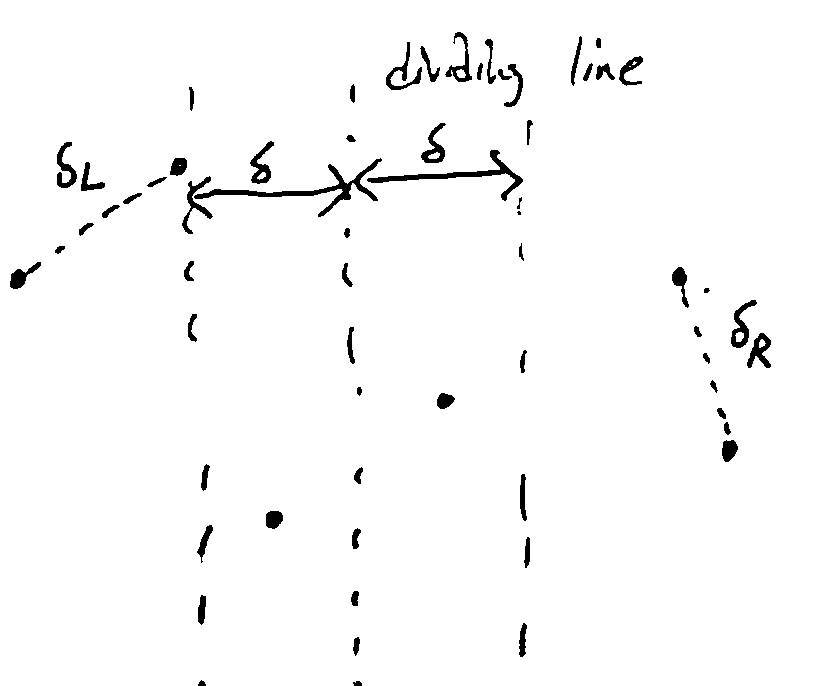 dividing line
δL δ δ
δR